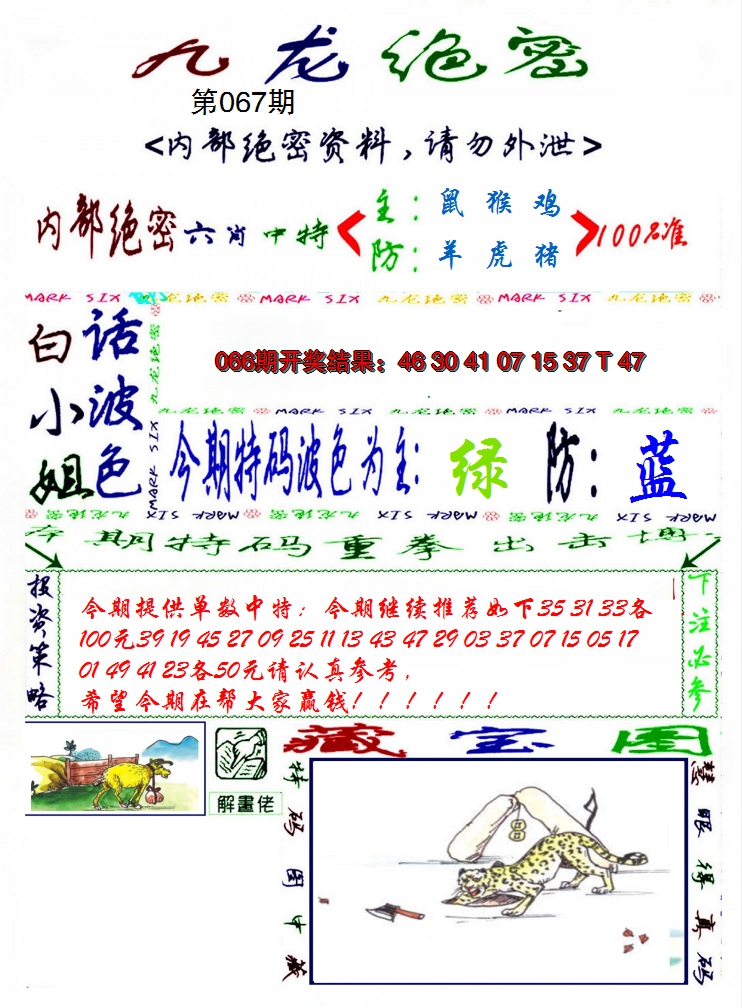 九龙绝密
第067期
<内部绝密资料,请勿外泄>
内部绝密六肖中特
主：鼠 猴 鸡
防：羊 虎 猪
100%准
MARK SIX 九龙绝密 MARK SIX 九龙绝密 MARK SIX 九龙绝密
白小姐
话波色
066期开奖结果：46 30 41 07 15 37 T 47
九龙绝密 MARK SIX 九龙绝密 MARK SIX 九龙绝密
九龙绝密 MARK SIX
今期特码波色为主:绿 防:蓝
MARK SIX 九龙绝密 MARK SIX 九龙绝密 MARK SIX 九龙绝密
期特码重拳出击
投资策略
今期提供单数中特；今期继续推荐如下35 31 33各
100元39 19 45 27 09 25 11 13 43 47 29 03 37 07 15 05 17
01 49 41 23各50元请认真参考,
希望今期在帮大家赢钱！！！！！！
下注必参
藏宝图
解畫佬
特码图中藏
慧眼得真码